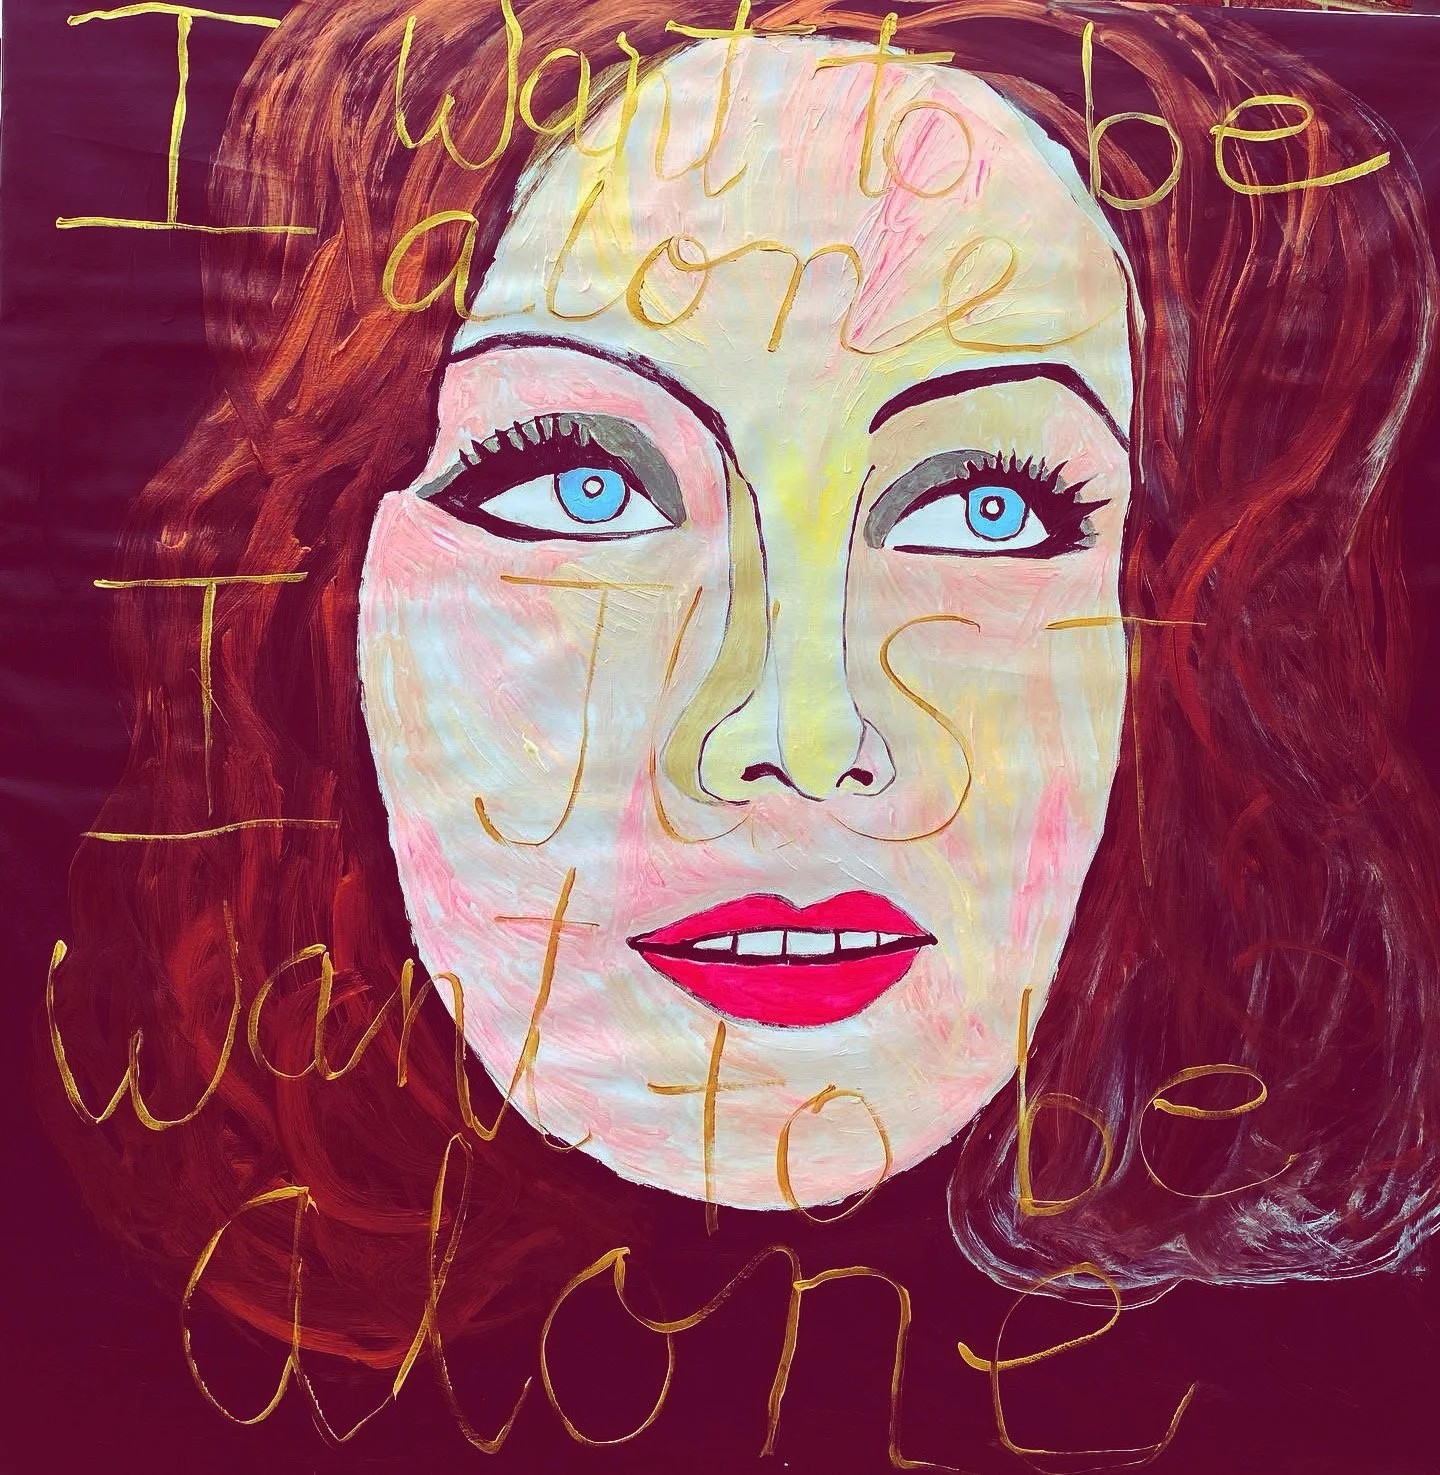 I want to be
alone
I JUST
want to be
alone